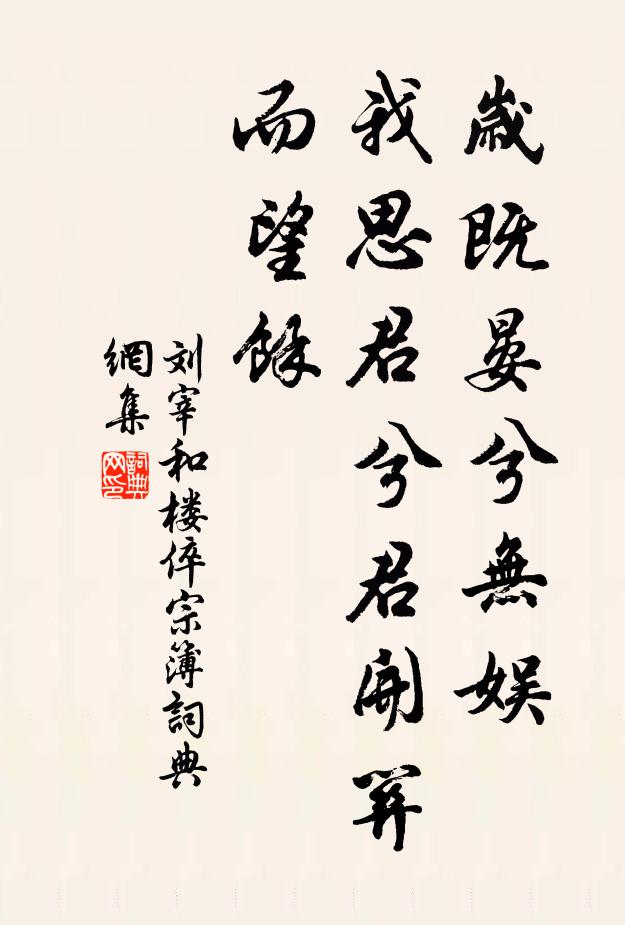 歲既晏兮無娱
我思君兮君開
而望餘
刘宰和楼倅宗簿詞典
網集
詞典
网印